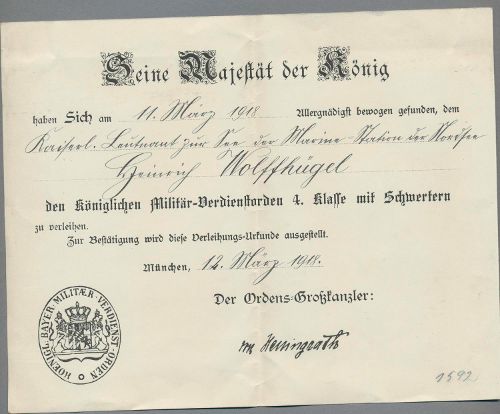 Seine Majestät der König
haben Sich am 11. März 1918 Allergnädigst bewogen gefunden, dem
Kaiserl. Leutnant zur See der Marine-Station der Nordsee
Heinrich Wolffhügel
den Königlichen Militär-Verdienstorden 4. Klasse mit Schwertern
zu verleihen.
Zur Bestätigung wird diese Verleihungs-Urkunde ausgestellt.
München, 12. März 1918.
Der Ordens-Großkanzler:
KOENIGL. BAYER. MILITÆR-VERDIENST-ORDEN
1592